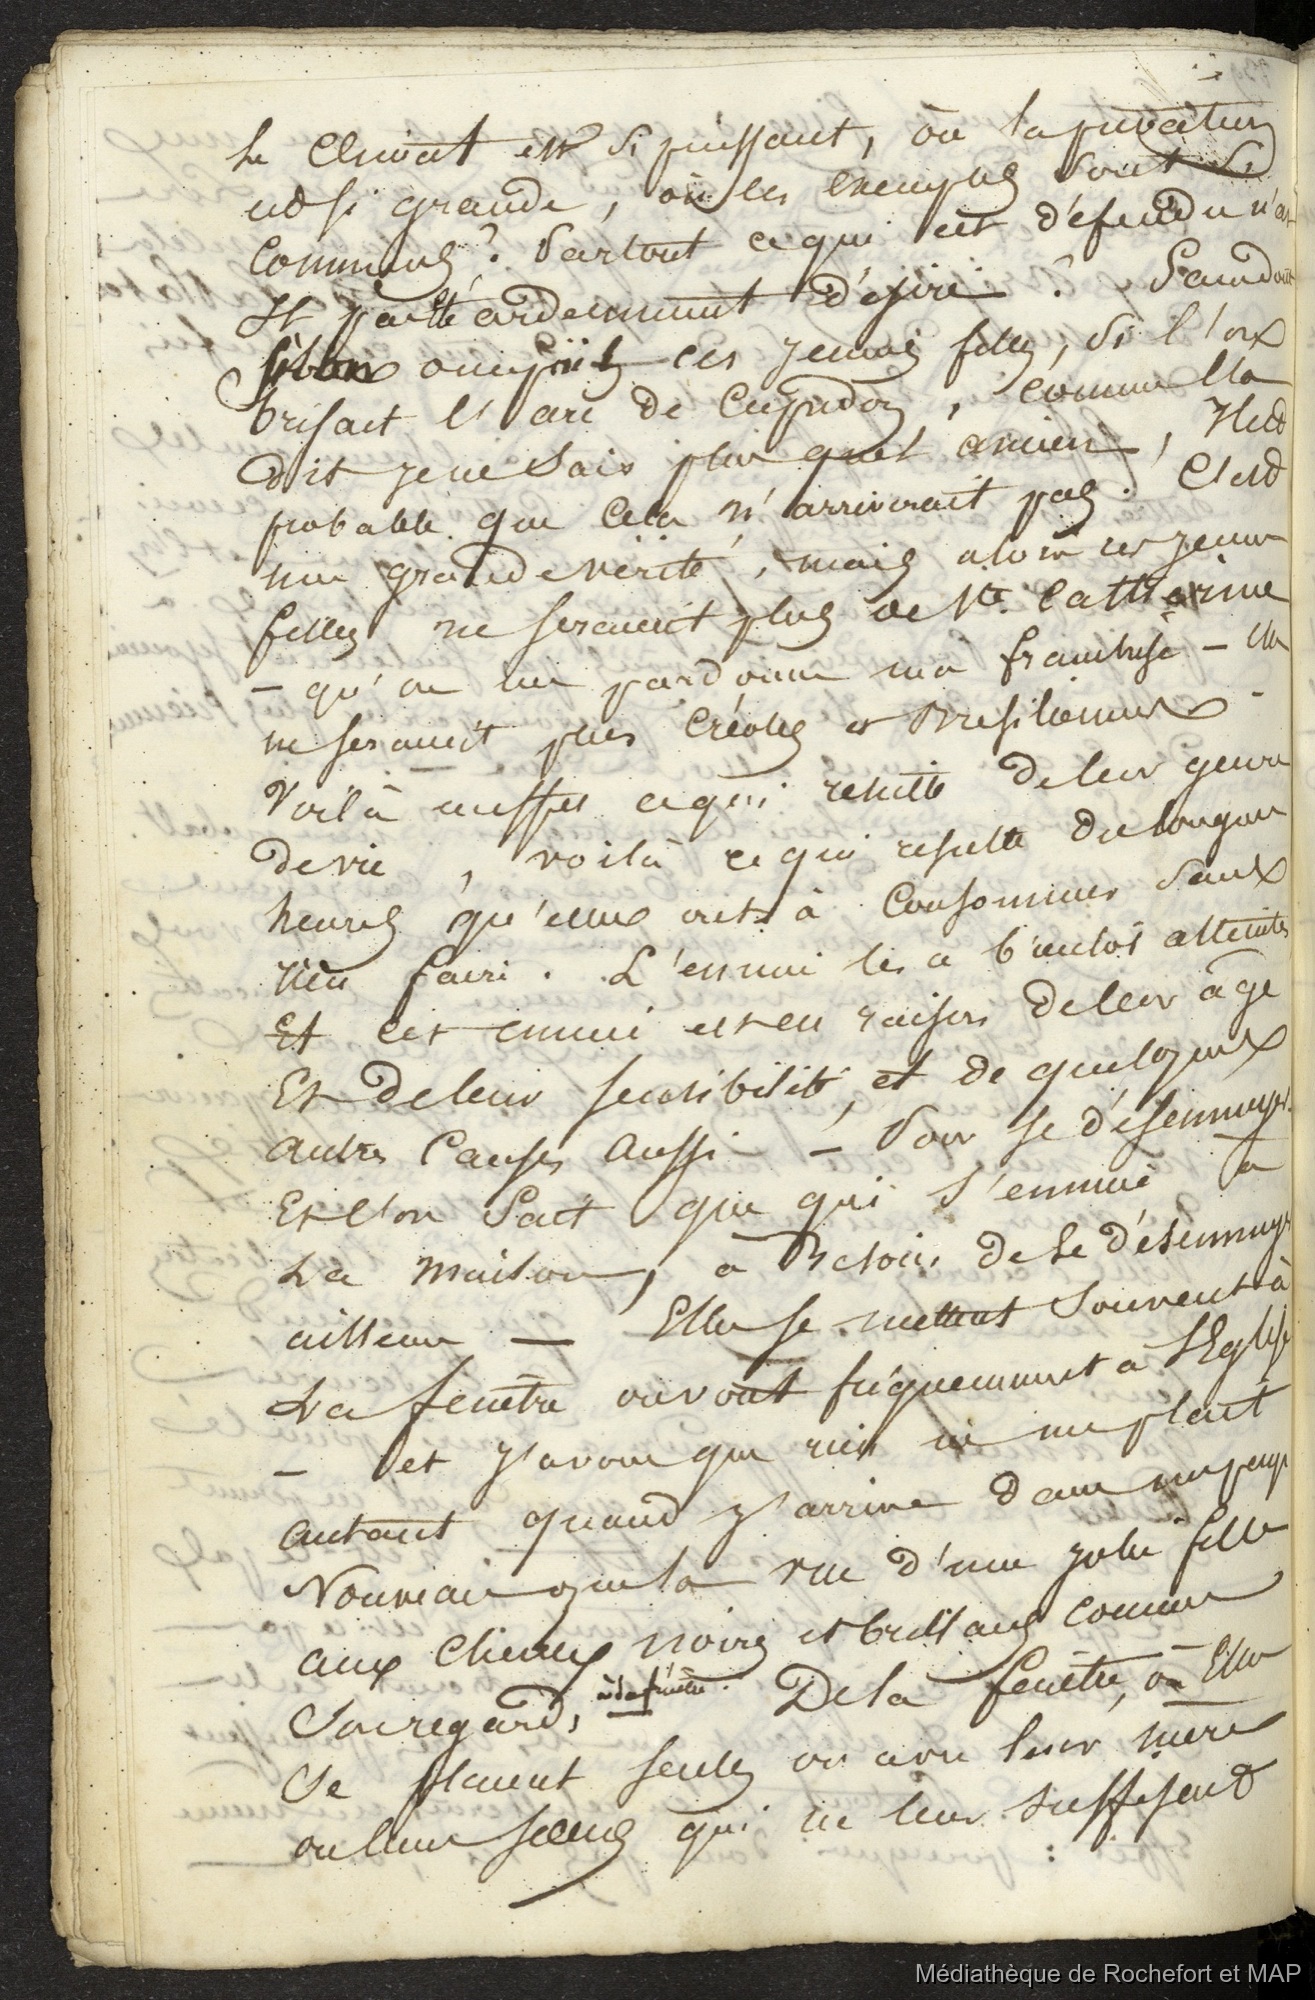 le climat est si puissant, où la privation
est si grande, où les exemples sont si
communs ? Partout ce qui est défendu n'est
il pas ardemment désiré ? Sans doute
si l'on occupait ces jeunes filles, si l'on
brisait l'arc de Cupidon, comme l'a
dit je ne sais plus quel ancien, il est
probable que cela n'arriverait pas. C'est
une grande vérité, mais alors ces jeunes
filles ne seraient plus de Ste. Catherine
- qu'on me pardonne ma franchise - elles
ne seraient plus créoles et Bresiliennes -
Voilà en effet ce qui resulte de leur genre
de vie, voilà ce qui resulte des longues
heures qu'elles ont à consommer sans
rien faire. L'ennui les a bientôt atteintes
Et cet ennui est en raison de leur âge
Et de leur sensibilité, et de quelques
autres causes aussi - Pour se désennuyer
Et l'on sait que qui s'ennuie à
La maison, a besoin de se désennuyer
ailleurs — Elles se mettent souvent à
La fenêtre ou vont fréquemment à l'Eglise
- et j'avoue que rien ne me plait
autant quand j'arrive dans un pays
Nouveau que la vue d'une jolie fille
aux cheveux noirs et brillans comme
Son regard, à la fenêtre. De la fenêtre, où Elles
se placent seules ou avec leur mère
ou leurs sœurs qui ne leur suffisent
:
Médiathèque de Rochefort et MAP